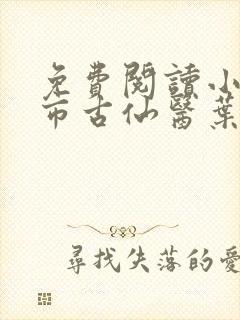 免費閱讀小
市古仙醫葉
尋找失落的愛